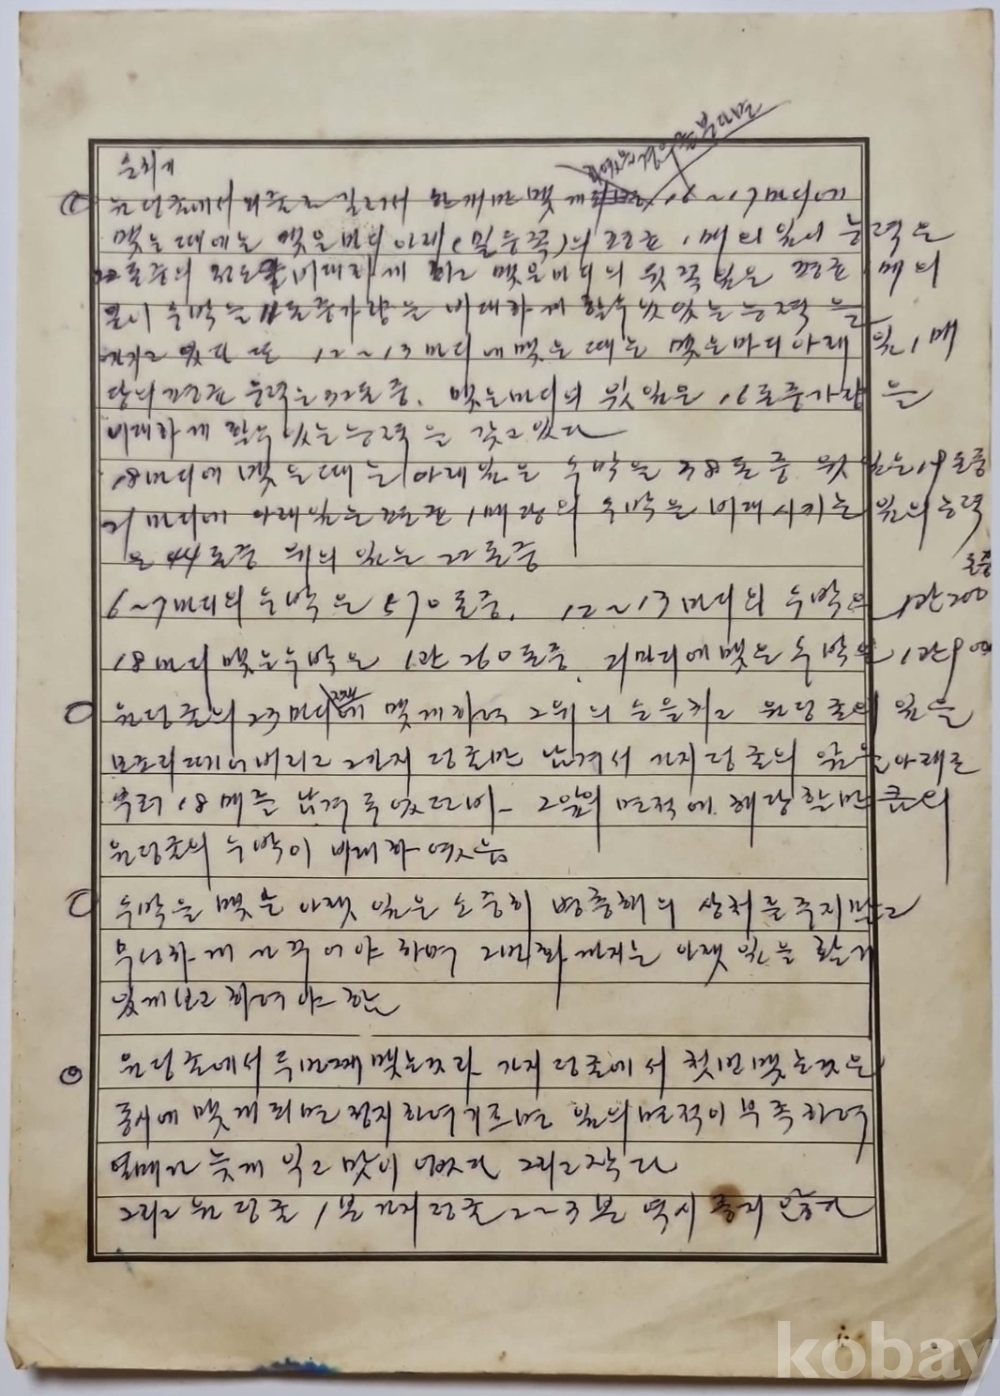 원덩굴에서 외줄로 길러서 한개만 맺게 16~17마디에
맺는 때에는 맺은마디 아래(밑둥쪽)의 경표 1매의 잎이 능력은
22돈중의 정도를 비대하게 하고 맺은마디의 윗쪽잎은 경표 1매의
잎이 수박을 11돈중가량을 비대하게 할수 있는 능력을
가지고 있다 또 12~13마디에 맺은 때는 맺은마디 아래 잎 1매
당의 경표 능력은 32돈중. 맺은마디의 윗잎은 16돈중가량 을
비대하게 할수 있는 능력을 갖고 있다
18마디에 맺은 때는 아래잎은 수박을 38돈중 윗잎은 19돈중
21마디에 아래잎은 경표 1매당의 수박을 비대시키는 잎의 능력
은 44돈중 위의 잎은 22돈중
6~7마디의 수박은 570돈중. 12~13마디의 수박은 1관200
돈중
18마디 맺은 수박은 1관260돈중. 21마디에 맺은 수박은 1관
원덩굴의 23마디에 맺게하여 그위의 순을치고 원덩굴의 잎을
모조리 따내버리고 2가지 덩굴만 남겨서 가지덩굴의 잎을 아래로
부터 18매를 남겨 두었더니 그잎의 면적에 해당할만큼의
원덩굴의 수박이 비대하였음
수박을 맺은 아랫잎은 소중히 병충해의 상처를 주지말고
무성하게 가꾸어야 하며 2번과 까지는 아랫잎을 활기
있게 보호하여야 함
원덩굴에서 두번째 맺는것과 가지덩굴에서 첫번 맺는것은
동시에 맺게 되면 정지하여 기르면 잎의 면적이 부족하여
열매가 늦게 익고 맛이 없다 그리고 작다
그리고 원덩굴 1본 가지덩굴 2~3본 역시 좋지 않다
kobay